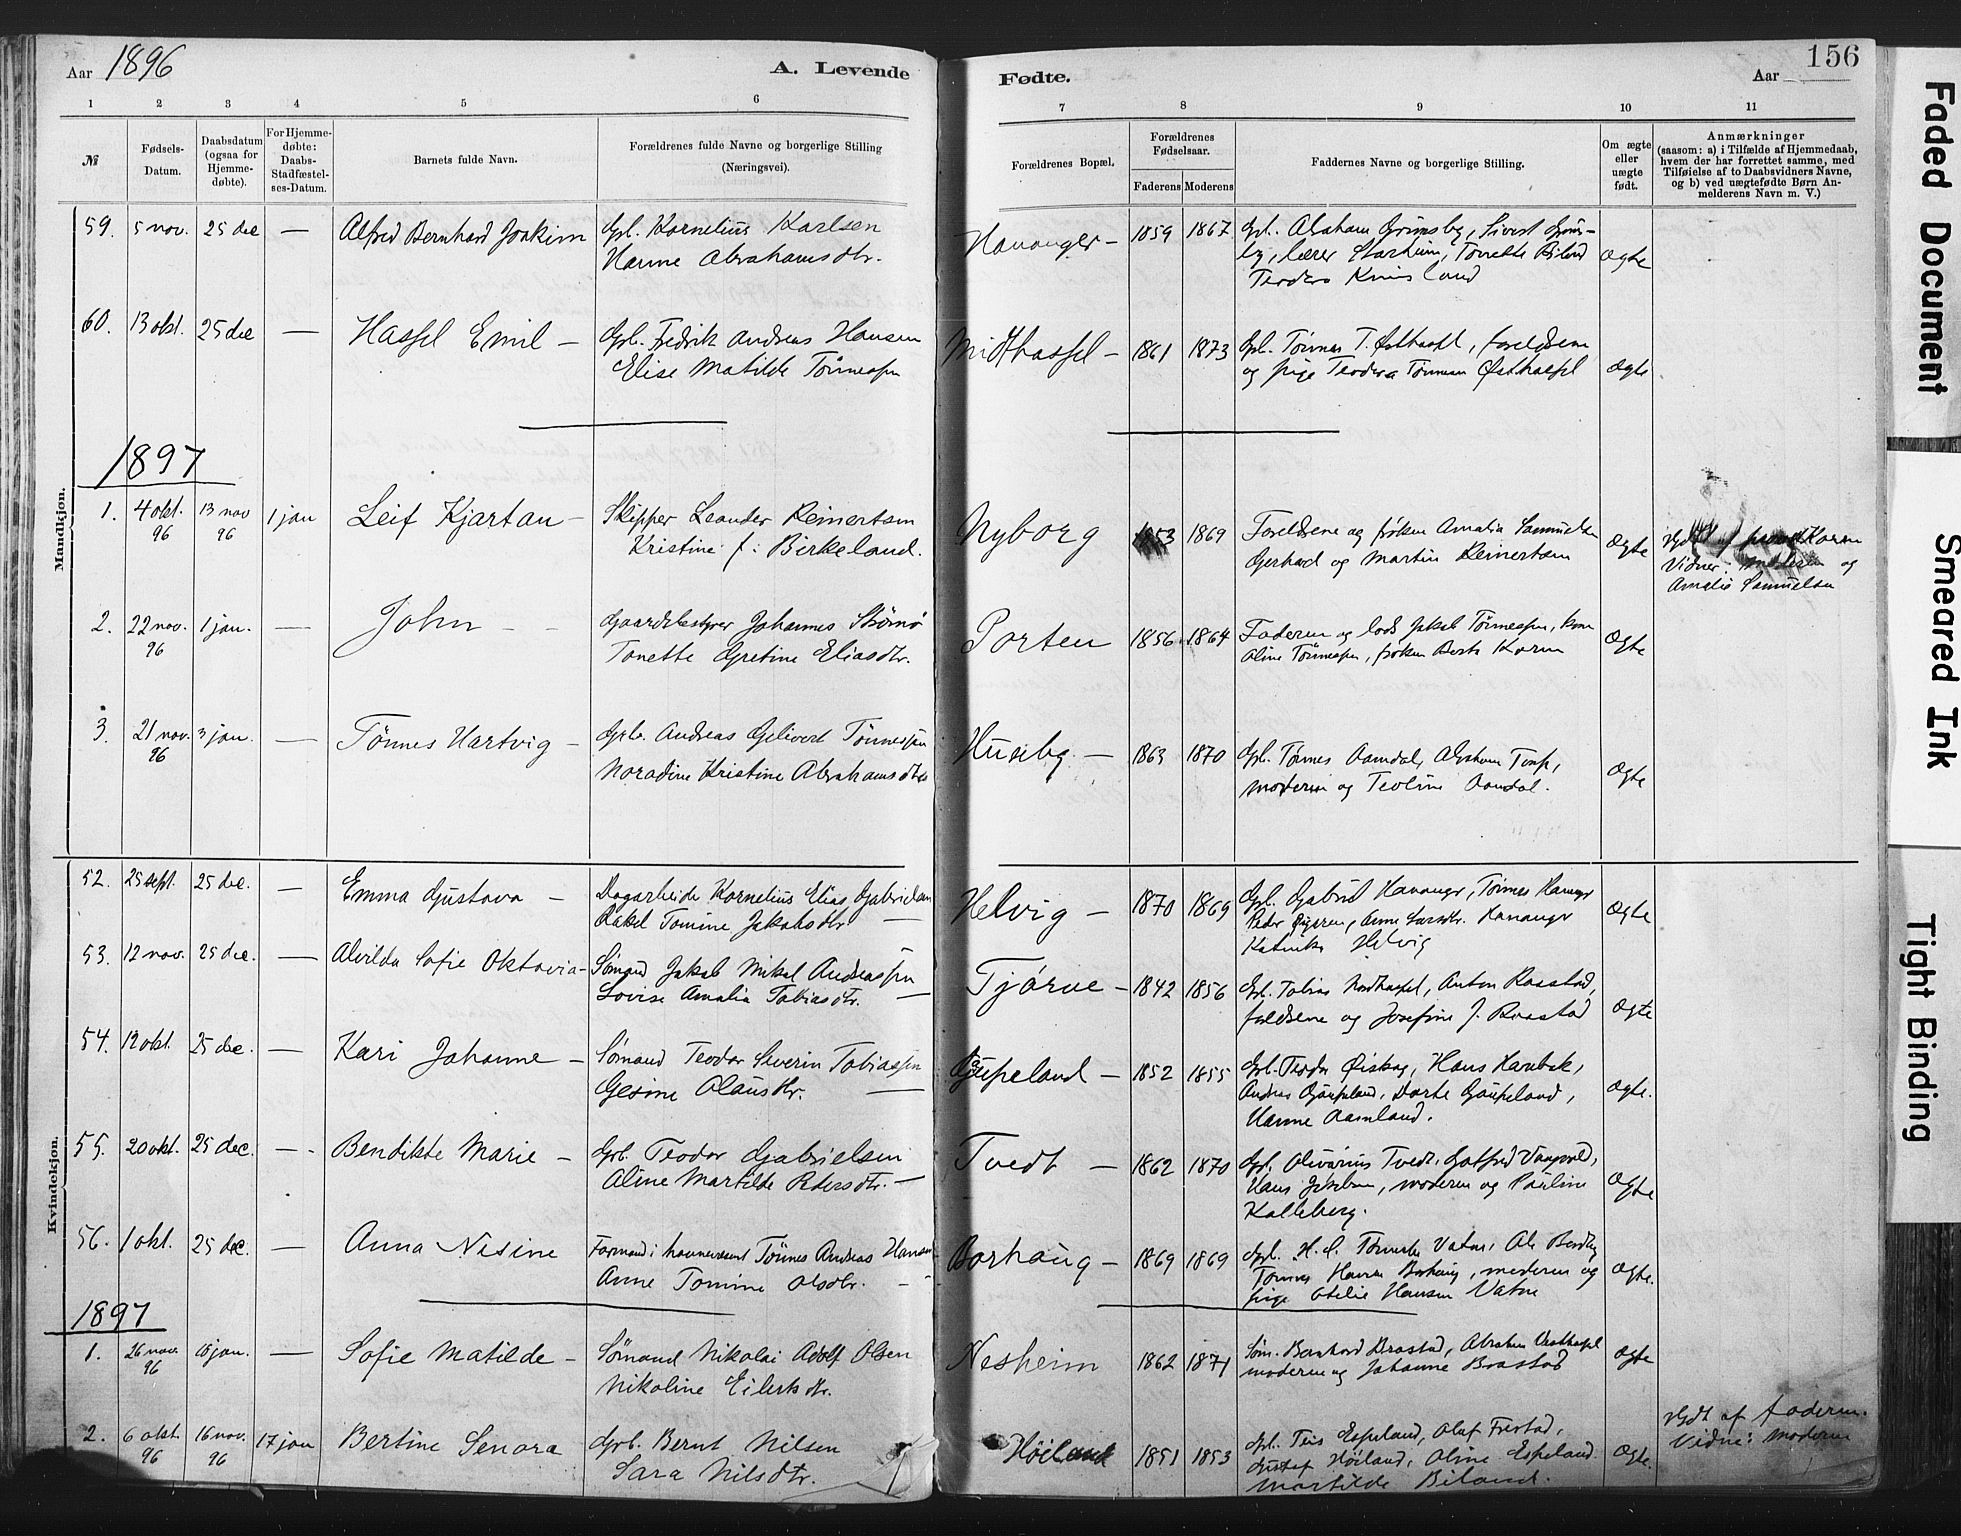 Aar 1896
A. Levende
Fødte.
156
Aar
1 2 3 4 5 6 7 8 9 10 11
№
Fødsels-
Datum.
Daabsdatum
(ogsaa for
Hjemme-
døbte).
For Hjemme-
døbte:
Daabs-
Stadfæstel-
ses-Datum.
Barnets fulde Navn.
Forældrenes fulde Navne og borgerlige Stilling
(Næringsvei).
Forældrenes Bopæl.
Forældrenes
Fødselsaar.
Faderens Moderens
Faddernes Navne og borgerlige Stilling.
Om ægte
eller
uægte
født.
Anmærkninger
(saasom: a) i Tilfælde af Hjemmedaab,
hvem der har forrettet samme, med
Tilføielse af to Daabsvidners Navne,
og b) ved uægtefødte Børn An-
melderens Navn m. V.)
Mandkjøn.
59. 5 nov. 25 dec — Alfred Bernhard Joakim Gpl. Kornelius Karlsen
Hanne Abrahamsdtr.
Hananger — 1859 1867 Gpl. Abraham Grimsby, Sivert Grims-
by, lærer Starheim, Tonette Biland
Teodora
Ægte
60. 13 okt. 25 dec — Hassel Emil — Gpl. Fedrik Andreas Hansen
Elise Matilde Tönnessen
Midthassel — 1861 1873 Gpl. Tönnes T. Østhassel, foreldrene
og pige Teodora Tönnesen Østhassel
Ægte
1897
1. 4 okt. 96 13 nov 96 1 jan Leif Kjartan — Skipper Leander Reinertsen
Kristine f: Birkeland.
Nyborg 1853 1869 Foreldrene og frøken Amalia Samuelsen
Gerhard og Martin Reinertsen
Ægte
Vidner: moderen og
Amalie Samuelsen
2. 22 nov. 96 1 jan. — John — Gaardsbestyrer Johannes Skømø
Tonette Gretine Eliasdtr.
Porten 1856 1864 Faderen og lods Jakob Tönnessen, kone
Aline Tönnessen, frøken Berta Koren
Ægte
3. 21 nov. 96 3 jan. — Tönnes Hartvig — Gpl. Andreas Gelivert Tönnessen
Noradine Kristine Abrahamsdtr
Huseby — 1863 1870 Gpl. Tönnes Aamdal, Abraham
moderen og Teoline Aamdal.
Ægte
Kvindekjøn.
52. 25 sept. 25 dec. — Emma Gustava — Dagarbeider Kornelius Elias Gabrielsen
Rakel Tomine Jakobsdtr —
Helvig — 1870 1869 Gpl. Gabriel Hananger, Tönnes Hananger
Peder Anne Larsdtr. Hananger
Katinka Helvig
Ægte
53. 12 nov. 25 dec. — Alvilda Sofie Oktavia — Sømand Jakob Mikal Andreassen
Lovise Amalia Tobiasdtr. —
Tjørve — 1842 1856 Gpl. Tobias Nordhassel, Anton Raastad,
foreldrene og Josefine J. Braastad
Ægte
54. 12 okt. 25 dec. — Kari Johanne — Sømand Teodor Severin Tobiassen
Gesine Olausdtr. —
Gjupeland — 1852 1855 Gpl. Teodor Øiskog, Hans Harebek,
Andreas Gjaupeland, Dorte Gjaupeland,
Hanne Aamland.
Ægte.
55. 20 okt. 25 dec. — Bendikte Marie — Gpl. Teodor Gabrielsen
Aline Martilde Pedersdtr. —
Tvedt — 1862 1870 Gpl. Olivarius Tvedt, Gotfred Vaagvold,
Hans Jakobsen, moderen og Pauline
Kalleberg.
Ægte
56. 1 okt. 25 dec. — Anna Nisine Formand i havnevæsenet Tönnes Andreas Hansen
Anne Tomine Olsdtr. —
Borhaug — 1869 1869 Gpl. H. C. Tönnesen Vatne, Ole
Tönnes Hansen Borhaug, moderen og
pige Otelie Hansen Vatne
Ægte.
1897
1. 26 nov. 96 10 jan. — Sofie Matilde — Sømand Nikolai Adolf Olsen
Nikoline Eilertsdtr.
Nesheim 1862 1871 Søm. Bernhard Braastad, Abraham Vesthassel
moderen og Johanne Braastad
Ægte
2. 6 okt. 96 16 nov. 96 17 jan Bertine Senora Gpl. Bernt Nilsen
Sara Nilsdtr.
Høiland 1851 1853 Gpl. Teis Espeland, Oluf Frestad,
Gustav Høiland, Oline Espeland.
Martilde Biland.
Ægte.
Hjdt af faderen.
Vidne: moderen
Faded Document
Smeared Ink
Tight Binding